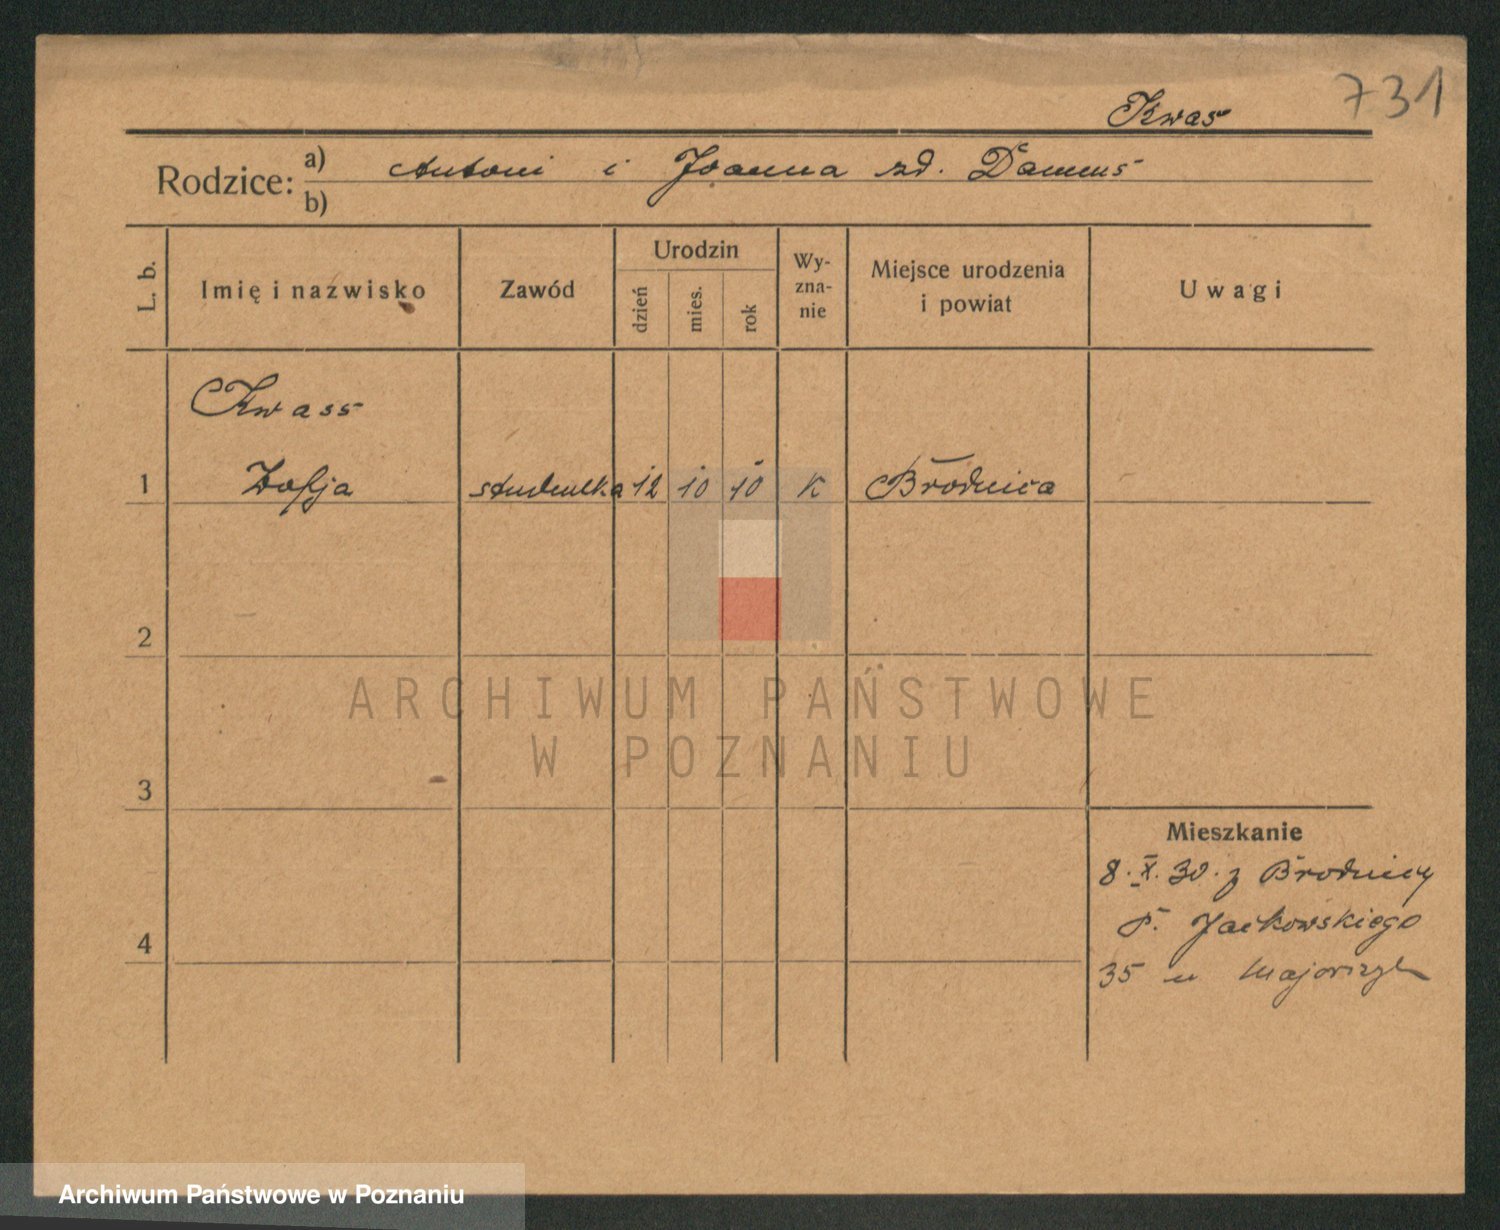 731
Kwas
Rodzice: a) Antoni i Joanna zd. Damus
b)
L. b.
Imię i nazwisko
Zawód
Urodzin
dzień
mies.
rok
Wy-
zna-
nie
Miejsce urodzenia
i powiat
Uwagi
Kwass
1 Zofja studentka 12 10 10 K Brodnica
2
3
4
Mieszkanie
8.X.30. z Brodnicy
Jackowskiego
35 u
ARCHIWUM PAŃSTWOWE
W POZNANIU
Archiwum Państwowe w Poznaniu